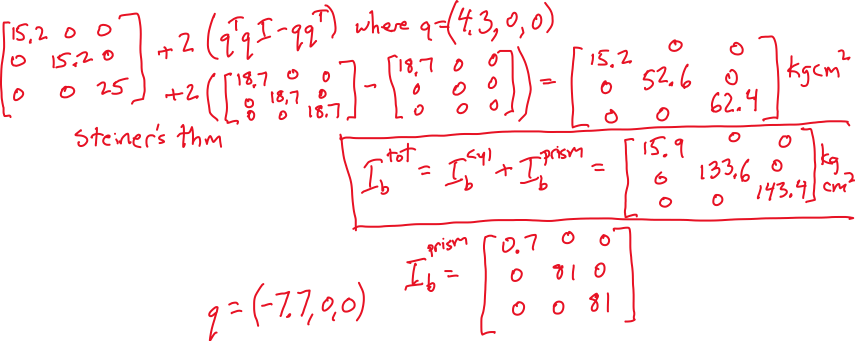 [15.2 0 0; 0 15.2 0; 0 0 25] + 2 (qᵀq I - qqᵀ) where q = (4.3, 0, 0)
+2 ([18.7 0 0; 0 18.7 0; 0 0 18.7] - [18.7 0 0; 0 0 0; 0 0 0]) = [15.2 0 0; 0 52.6 0; 0 0 62.4] kgcm²
Steiner's thm
I_b^tot = I_b^cyl + I_b^prism = [15.9 0 0; 0 133.6 0; 0 0 143.4] kg cm²
I_b^prism = [0.7 0 0; 0 81 0; 0 0 81]
q = (-7.7, 0, 0)